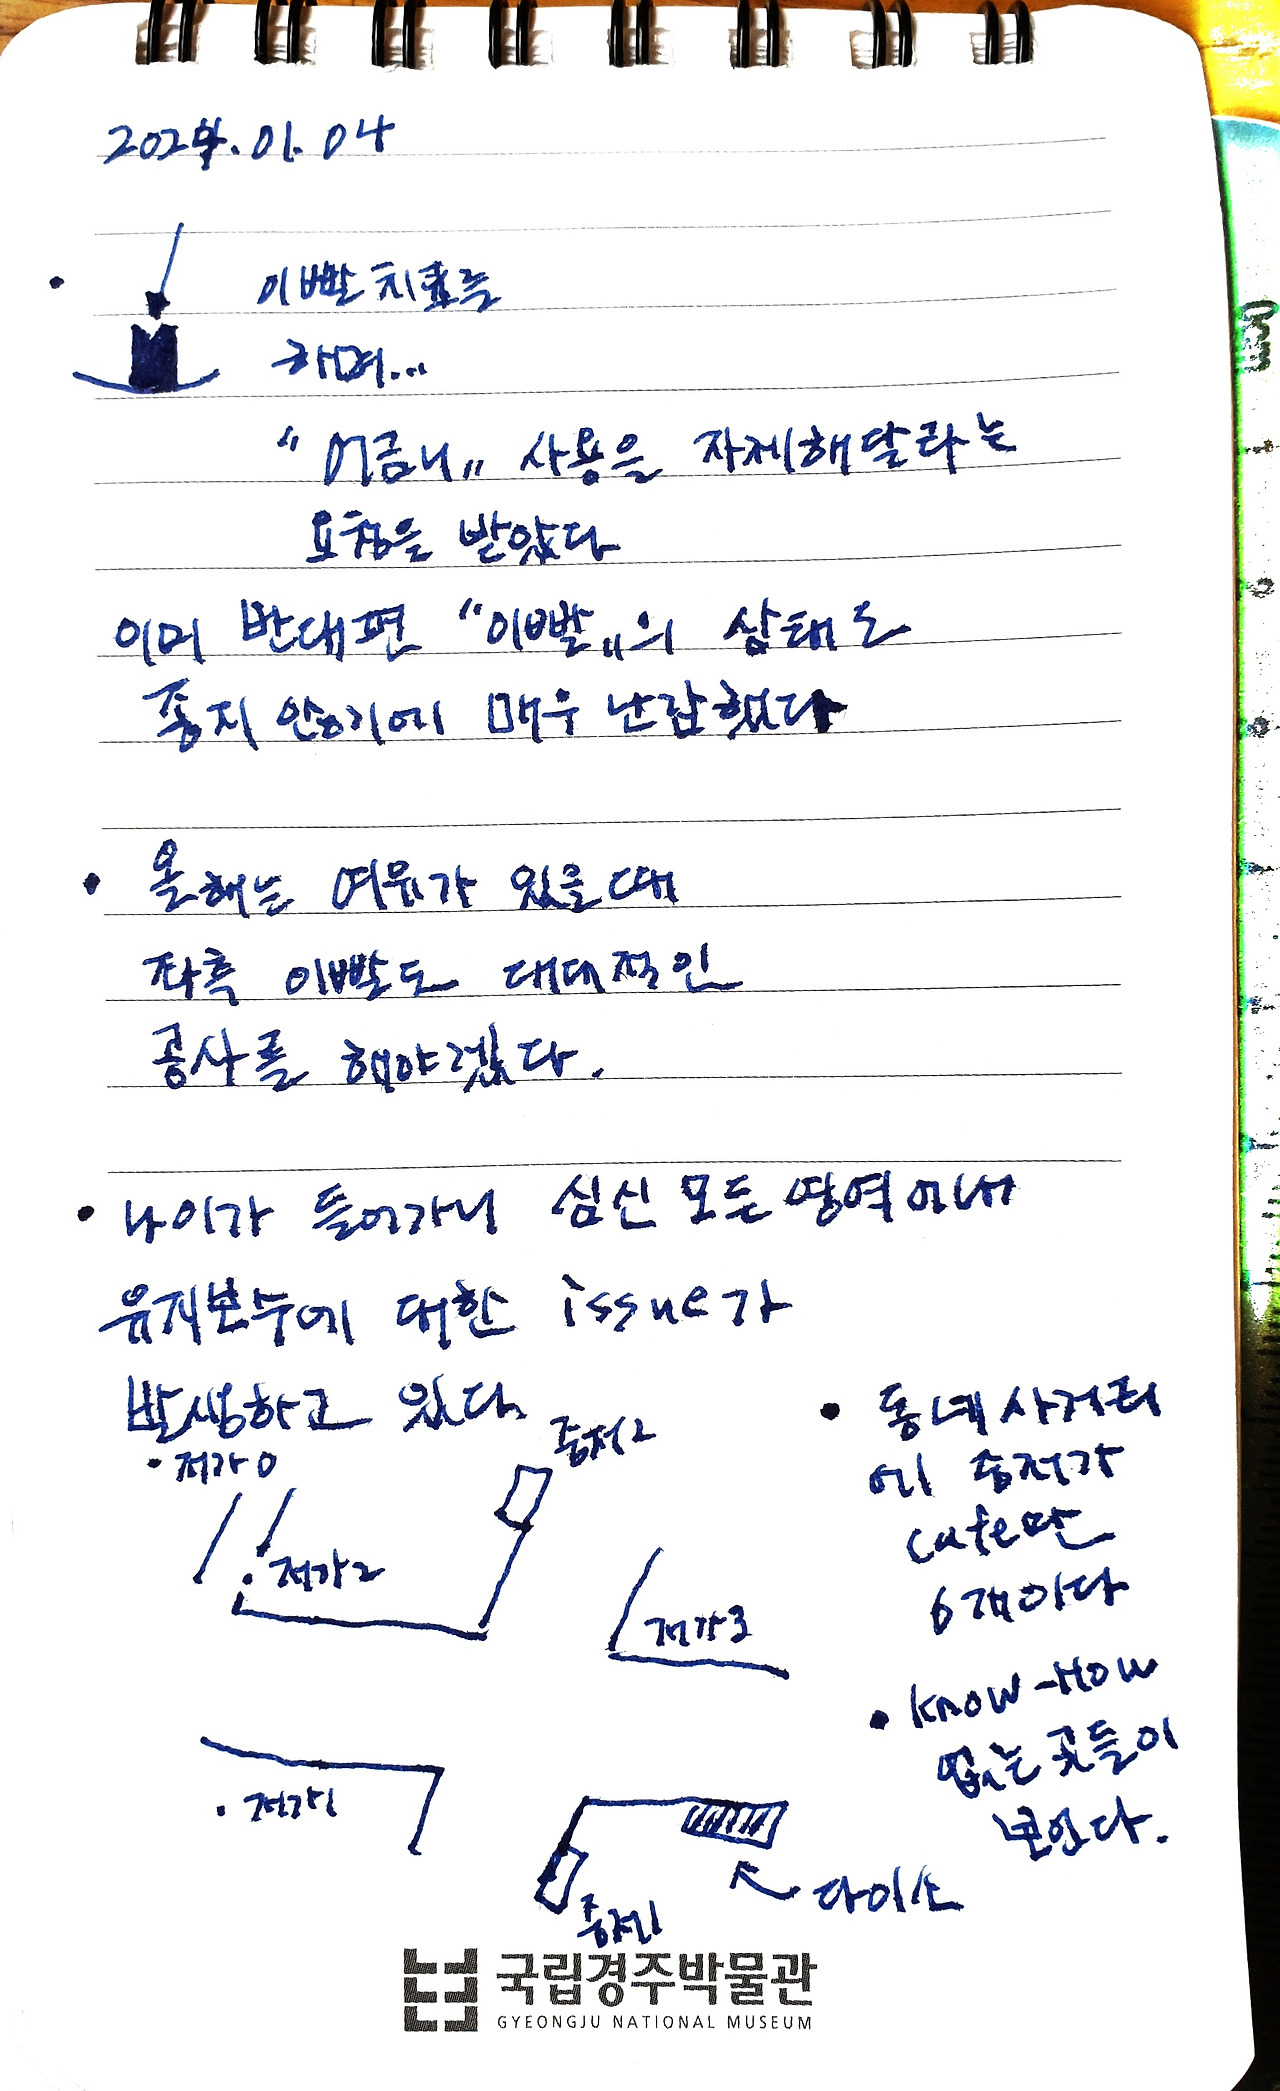 2024.01.04
• 이빨치료를
하며...
"어금니" 사용을 자제해달라는
요청을 받았다
이미 반대편 "이빨"의 상태도
좋지 않기에 매우 난감했다
• 올해는 여유가 있을때
좌측 이빨도 대대적인
공사를 해야겠다.
• 나이가 들어가니 심신 모든 영역에서
유지보수에 대한 issue가
발생하고 있다.
• 저가0
중저2
저가2
저가3
• 저가1
중저1
다이소
• 동네사거리
에 중저가
cafe만
6개이다
• KNOW-HOW
없는 곳들이
보인다.
국립경주박물관
GYEONGJU NATIONAL MUSEUM